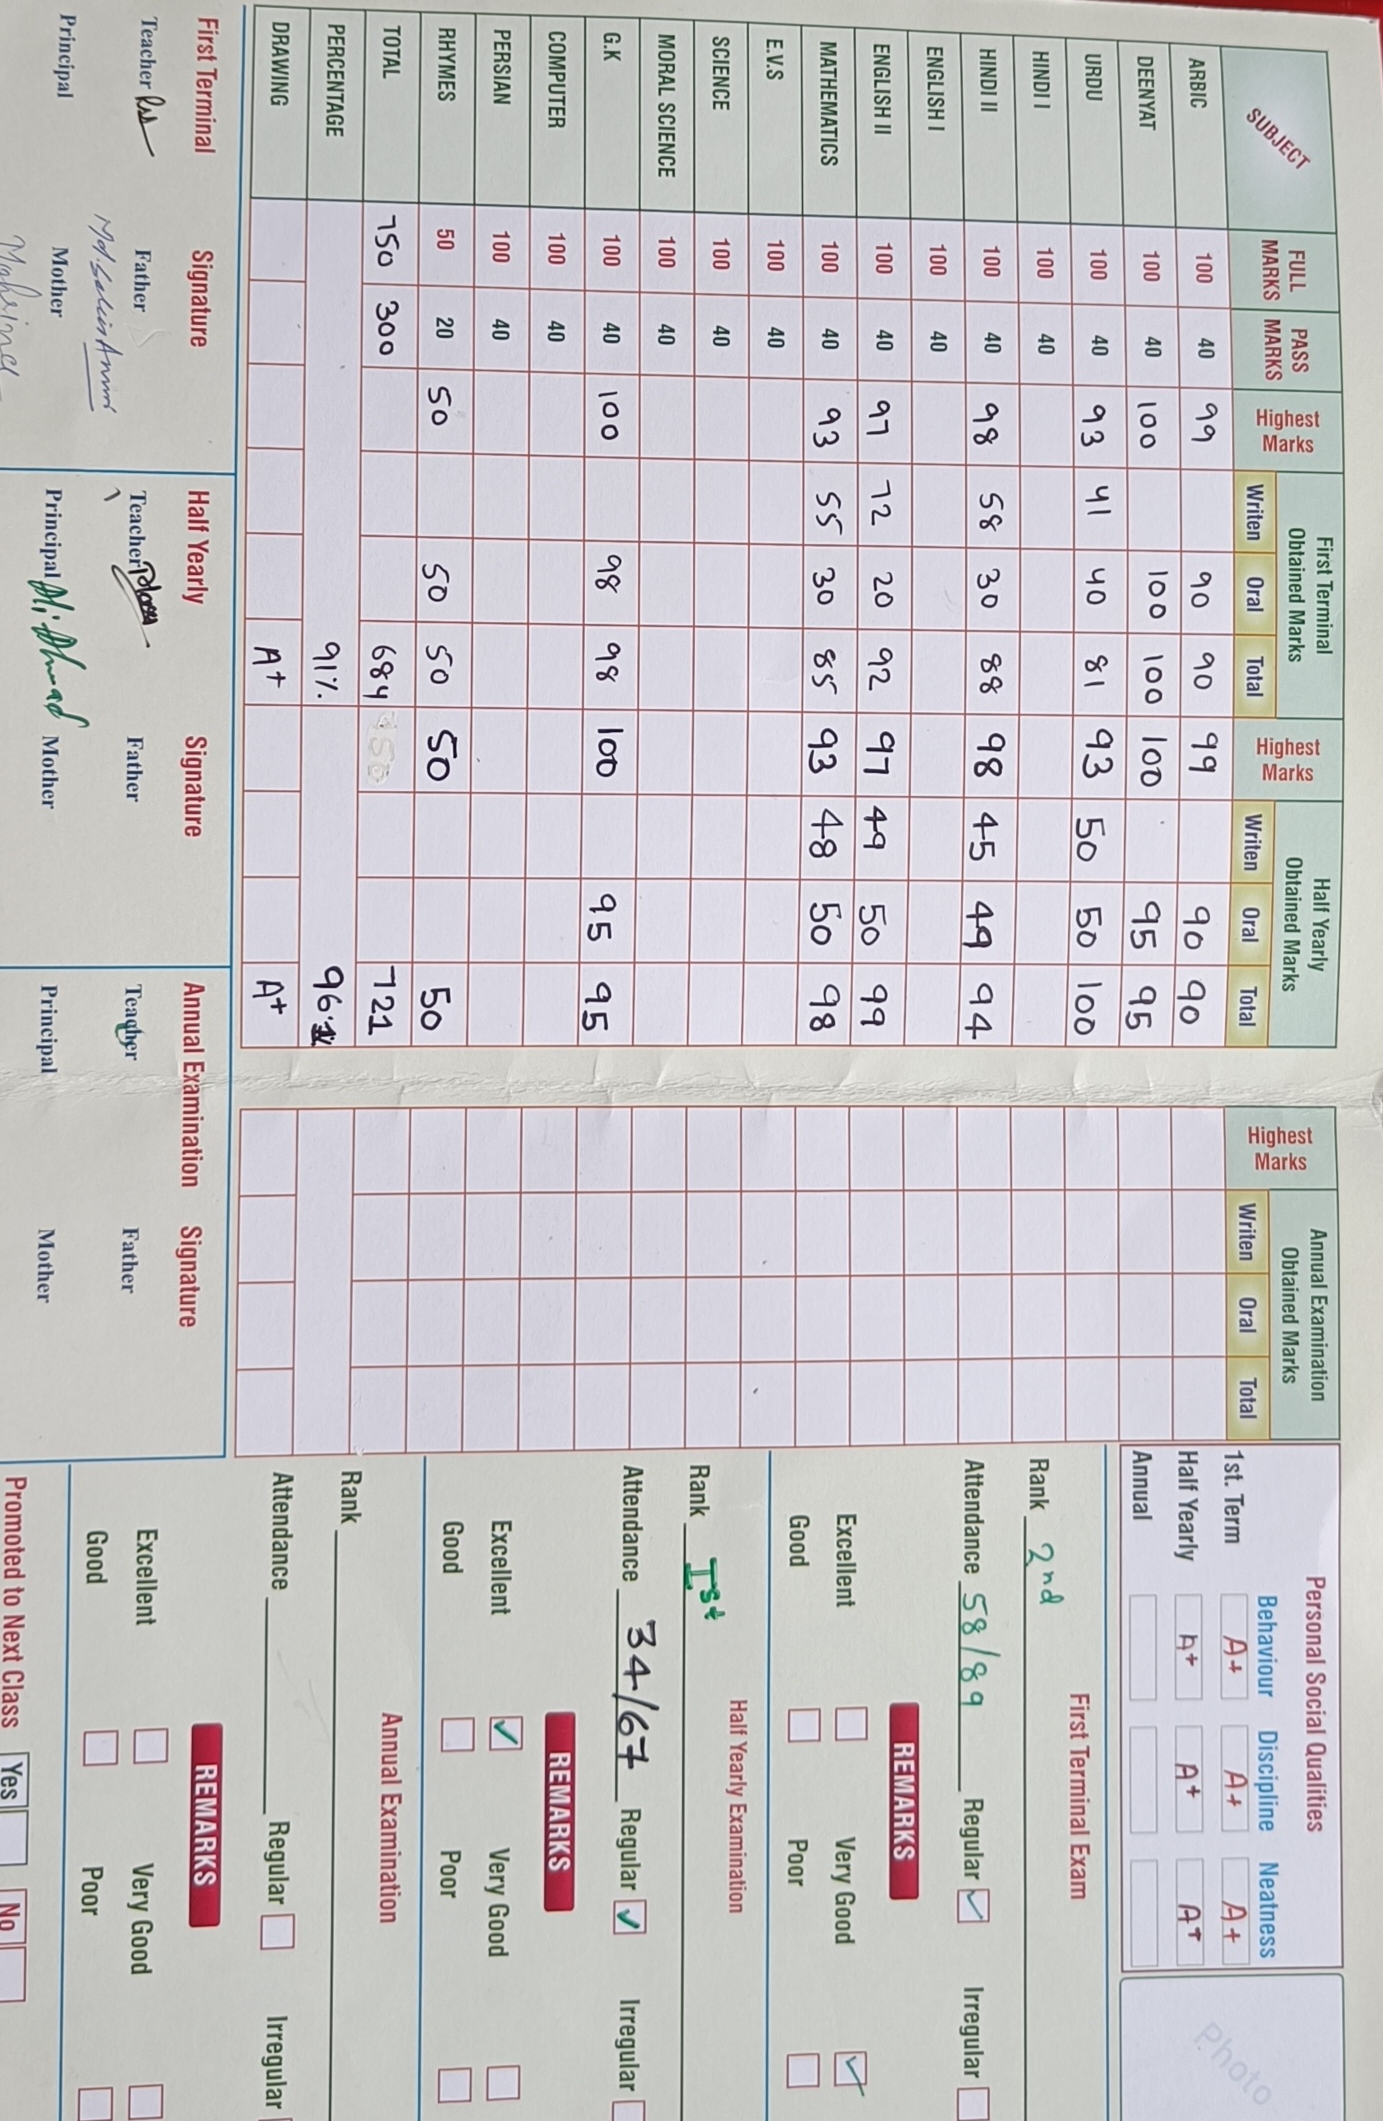 SUBJECT FULL MARKS PASS MARKS Highest Marks First Terminal Obtained Marks Writen Oral Total Highest Marks Half Yearly Obtained Marks Writen Oral Total Highest Marks Annual Examination Obtained Marks Writen Oral Total
ARBIC 100 40 99 90 90 99 90 90
DEENYAT 100 40 100 100 100 100 95 95
URDU 100 40 93 41 40 81 93 50 50 100
HINDI I 100 40
HINDI II 100 40 98 58 30 88 98 45 49 94
ENGLISH I 100 40
ENGLISH II 100 40 97 72 20 92 97 49 50 99
MATHEMATICS 100 40 93 55 30 85 93 48 50 98
E.V.S 100 40
SCIENCE 100 40
MORAL SCIENCE 100 40
G.K 100 40 100 98 98 100 95 95
COMPUTER 100 40
PERSIAN 100 40
RHYMES 50 20 50 50 50 50 50
TOTAL 750 300 684 721
PERCENTAGE 91% 96.
DRAWING A+ A+
First Terminal Signature
Teacher Father
Principal Mother
Half Yearly Signature
Teacher Father
Principal Ali Ahmad Mother
Annual Examination Signature
Teacher Father
Principal Mother
Personal Social Qualities
Behaviour Discipline Neatness
1st. Term A+ A+ A+
Half Yearly A+ A+ A+
Annual
Photo
First Terminal Exam
Rank 2nd
Attendance 58/89 Regular ✓ Irregular
REMARKS
Excellent Very Good ✓
Good Poor
Half Yearly Examination
Rank Ist
Attendance 34/67 Regular ✓ Irregular
REMARKS
Excellent ✓ Very Good
Good Poor
Annual Examination
Rank
Attendance Regular Irregular
REMARKS
Excellent Very Good
Good Poor
Promoted to Next Class Yes No